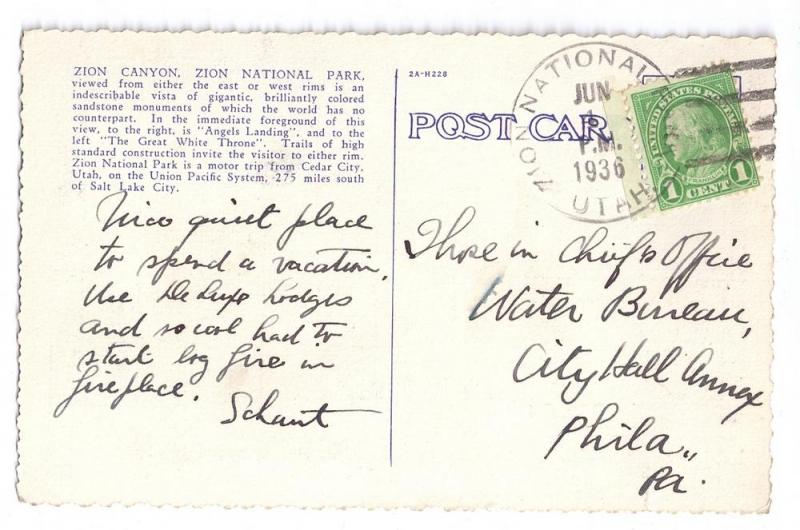 ZION CANYON, ZION NATIONAL PARK,
viewed from either the east or west rims is an
indescribable vista of gigantic, brilliantly colored
sandstone monuments of which the world has no
counterpart. In the immediate foreground of this
view, to the right, is "Angels Landing", and to the
left "The Great White Throne". Trails of high
standard construction invite the visitor to either rim.
Zion National Park is a motor trip from Cedar City,
Utah, on the Union Pacific System, 275 miles south
of Salt Lake City.
Nice quiet place
to spend a vacation.
Use De Luxe Lodges
and so cool had to
start log fire in
fireplace.
Schaut
2A-H228
POST CARD
ZION NATIONAL
JUN
1
P.M.
1936
UTAH
UNITED STATES POSTAGE
1 CENT 1
Those in Chief's Office
Water Bureau,
City Hall Annex
Phila.,
Pa.